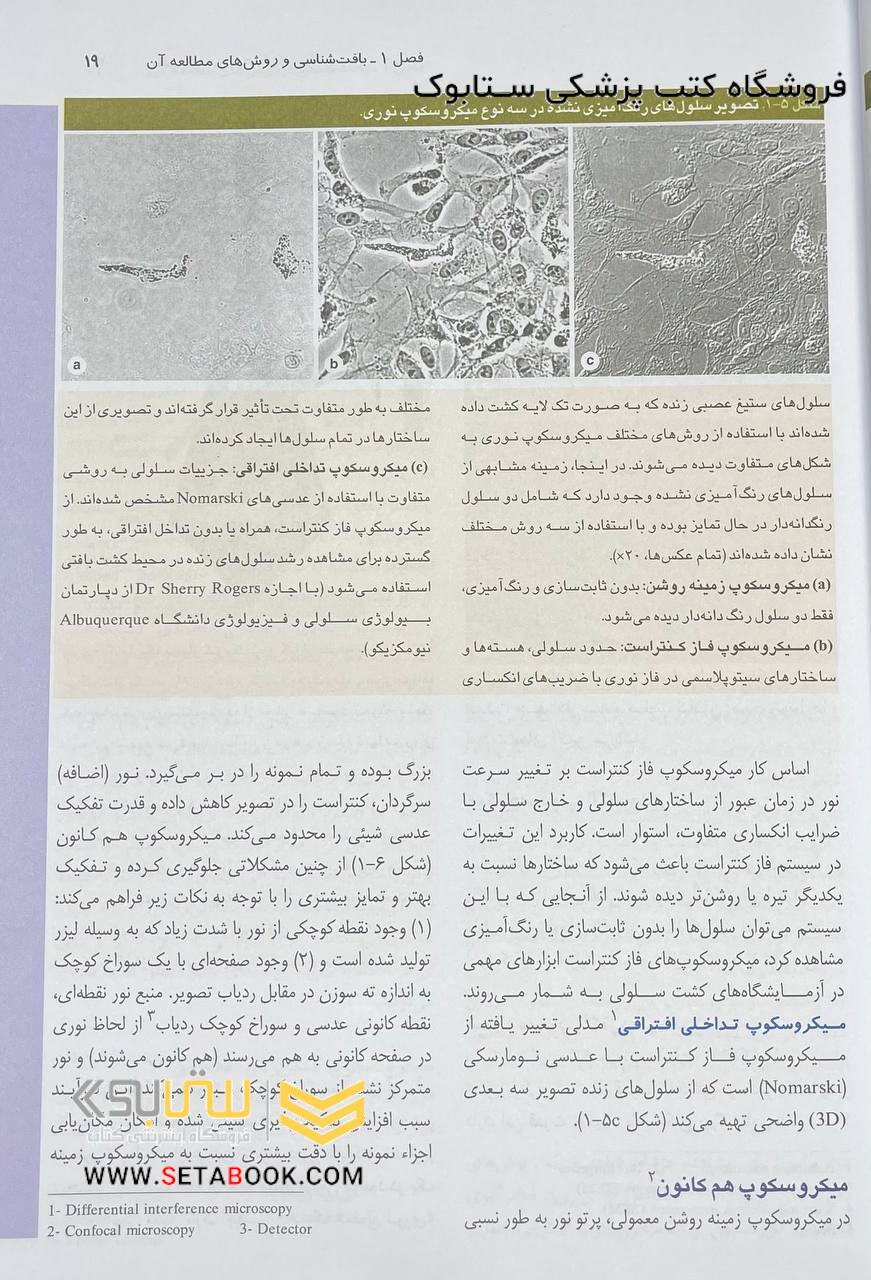 فصل ۱ ـ بافت‌شناسی و روش‌های مطالعه آن ۱۹
فروشگاه کتب پزشکی ستابوک
شکل ۵-۱. تصویر سلول‌های رنگ‌آمیزی نشده در سه نوع میکروسکوپ نوری.
a
b
c
سلول‌های ستیغ عصبی زنده که به صورت تک لایه کشت داده
شده‌اند با استفاده از روش‌های مختلف میکروسکوپ نوری به
شکل‌های متفاوت دیده می‌شوند. در اینجا، زمینه مشابهی از
سلول‌های رنگ‌آمیزی نشده وجود دارد که شامل دو سلول
رنگدانه‌دار در حال تمایز بوده و با استفاده از سه روش مختلف
نشان داده شده‌اند (تمام عکس‌ها، ۲۰×).
(a) میکروسکوپ زمینه روشن: بدون ثابت‌سازی و رنگ‌آمیزی،
فقط دو سلول رنگ دانه‌دار دیده می‌شود.
(b) میکروسکوپ فاز کنتراست: حدود سلولی، هسته‌ها و
ساختارهای سیتوپلاسمی در فاز نوری با ضریب‌های انکساری
مختلف به طور متفاوت تحت تأثیر قرار گرفته‌اند و تصویری از این
ساختارها در تمام سلول‌ها ایجاد کرده‌اند.
(c) میکروسکوپ تداخلی افتراقی: جزییات سلولی به روشی
متفاوت با استفاده از عدسی‌های Nomarski مشخص شده‌اند. از
میکروسکوپ فاز کنتراست، همراه یا بدون تداخل افتراقی، به طور
گسترده برای مشاهده رشد سلول‌های زنده در محیط کشت بافتی
استفاده می‌شود (با اجازه Dr Sherry Rogers از دپارتمان
بیولوژی سلولی و فیزیولوژی دانشگاه Albuquerque
نیومکزیکو).
اساس کار میکروسکوپ فاز کنتراست بر تغییر سرعت
نور در زمان عبور از ساختارهای سلولی و خارج سلولی با
ضرایب انکساری متفاوت، استوار است. کاربرد این تغییرات
در سیستم فاز کنتراست باعث می‌شود که ساختارها نسبت به
یکدیگر تیره یا روشن‌تر دیده شوند. از آنجایی که با این
سیستم می‌توان سلول‌ها را بدون ثابت‌سازی یا رنگ‌آمیزی
مشاهده کرد، میکروسکوپ‌های فاز کنتراست ابزارهای مهمی
در آزمایشگاه‌های کشت سلولی به شمار می‌روند.
میکروسکوپ تداخلی افتراقی۱ مدلی تغییر یافته از
میکروسکوپ فاز کنتراست با عدسی نومارسکی
(Nomarski) است که از سلول‌های زنده تصویر سه بعدی
(3D) واضحی تهیه می‌کند (شکل ۵c-۱).
میکروسکوپ هم کانون۲
در میکروسکوپ زمینه روشن معمولی، پرتو نور به طور نسبی
بزرگ بوده و تمام نمونه را در بر می‌گیرد. نور (اضافه)
سرگردان، کنتراست را در تصویر کاهش داده و قدرت تفکیک
عدسی شیئی را محدود می‌کند. میکروسکوپ هم کانون
(شکل ۶-۱) از چنین مشکلاتی جلوگیری کرده و تفکیک
بهتر و تمایز بیشتری را با توجه به نکات زیر فراهم می‌کند:
(۱) وجود نقطه کوچکی از نور با شدت زیاد که به وسیله لیزر
تولید شده است و (۲) وجود صفحه‌ای با یک سوراخ کوچک
به اندازه ته سوزن در مقابل ردیاب تصویر. منبع نور نقطه‌ای،
نقطه کانونی عدسی و سوراخ کوچک ردیاب۳ از لحاظ نوری
در صفحه کانونی به هم می‌رسند (هم کانون می‌شوند) و نور
متمرکز نشده از سوراخ کوچک عبور نمی‌کند. این فرآیند
سبب افزایش تفکیک‌پذیری شیئی شده و امکان مکان‌یابی
اجزاء نمونه را با دقت بیشتری نسبت به میکروسکوپ زمینه
ستابوک
فروشگاه اینترنتی کتاب
WWW.SETABOOK.COM
1- Differential interference microscopy
2- Confocal microscopy 3- Detector